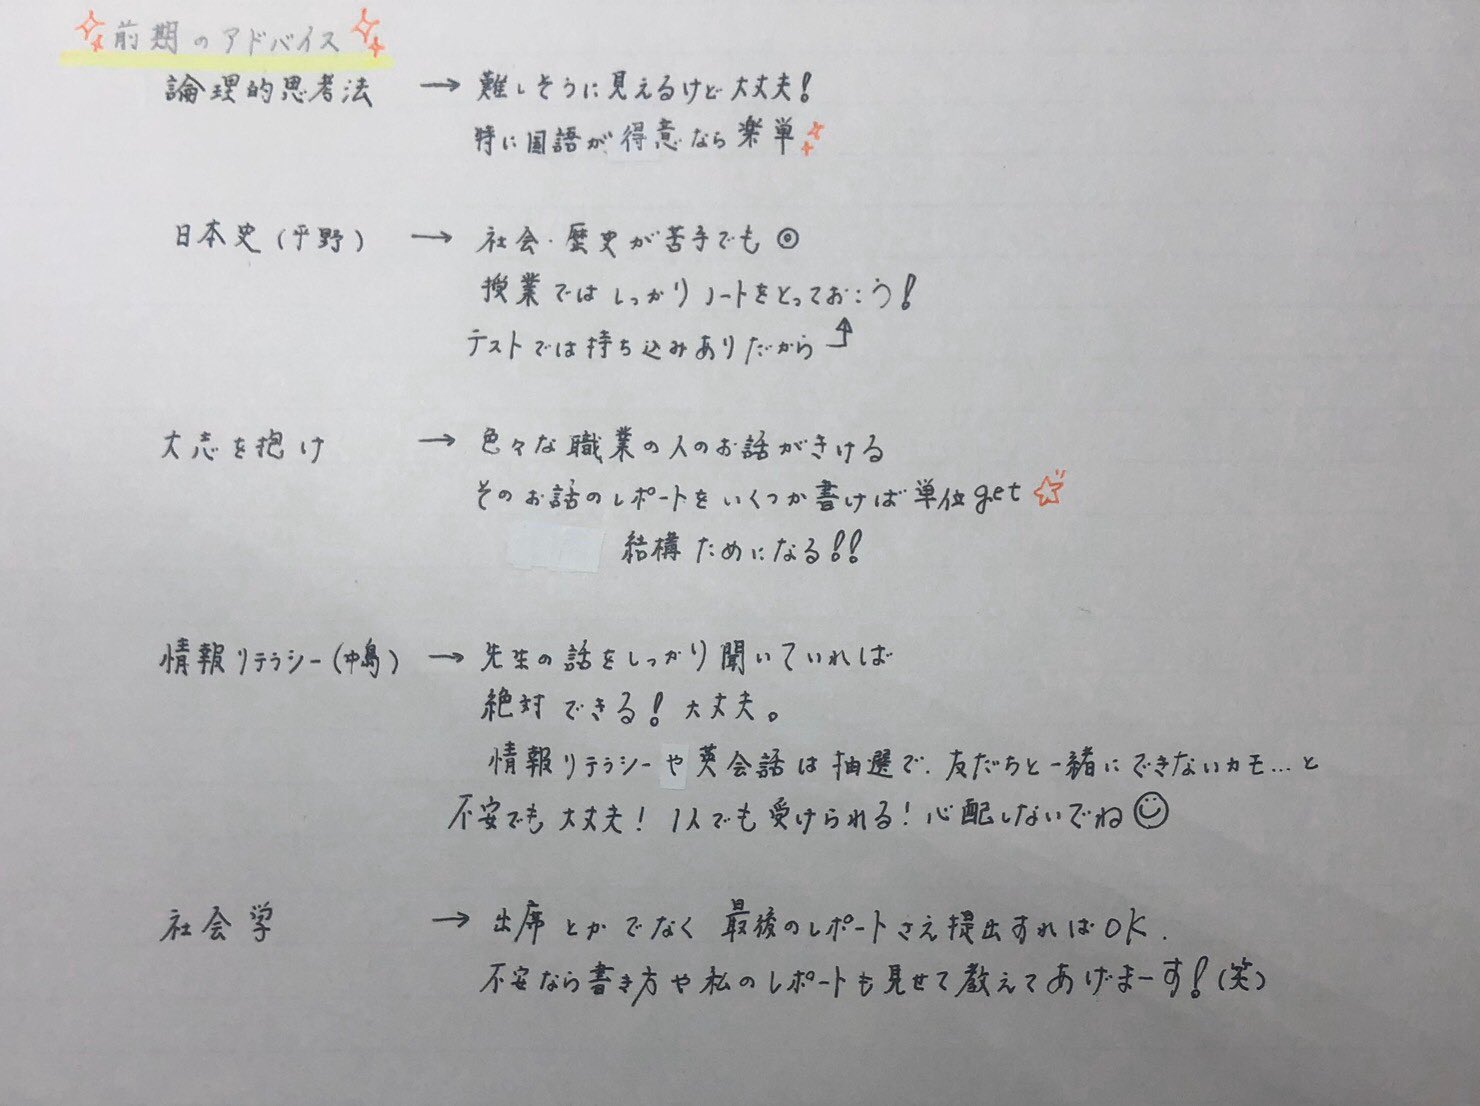 前期のアドバイス
論理的思考法 → 難しそうに見えるけど大丈夫!
特に国語が得意なら楽単
日本史(平野) → 社会・歴史が苦手でも◎
授業ではしっかりノートをとっておこう!
テストでは持ち込みありだから
大志を抱け → 色々な職業の人のお話がきける
そのお話のレポートをいくつか書けば単位get
結構ためになる!!
情報リテラシー(中島) → 先生の話をしっかり聞いていれば
絶対できる!大丈夫。
情報リテラシーや英会話は抽選で、友だちと一緒にできないカモ…と
不安でも大丈夫!1人でも受けられる!心配しないでね
社会学 → 出席とかでなく最後のレポートさえ提出すればOK.
不安なら書き方や私のレポートも見せて教えてあげまーす!(笑)